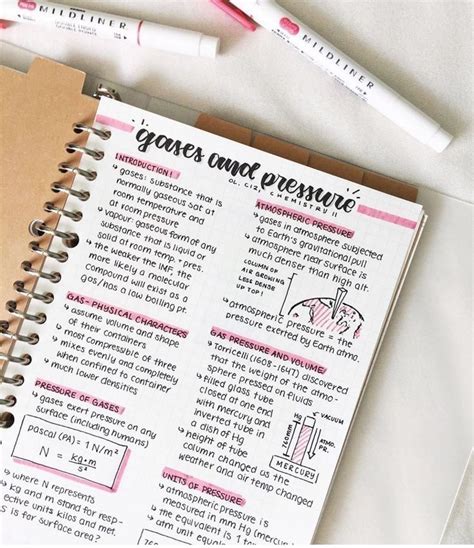 MILDLINER
MILDLINER
gases and pressure
OL, C12, CHEMISTRY 11
INTRODUCTION!
↳ gases: substance that is
normally gaseous sat at
room temperature and
at room pressure
↳ vapour: gaseous form of any
substance that is liquid or
solid at room temp. + pres.
↳ the weaker the IMF, the
more likely a molecular
compound will exist as a
gas/has a low boiling pt.
GAS- PHYSICAL CHARACTERS
↳ assume volume and shape
of their containers
↳ most compressible of three
↳ mixes evenly and completely
when confined to container
↳ much lower densities
PRESSURE OF GASES
↳ gases exert pressure on any
surface (including humans)
pascal (PA) = 1 N/m²
N = kg•m
s²
↳ where N represents
kg and m stand for resp-
ective units kilos and met.
S is for surface area?
ATMOSPHERIC PRESSURE
↳ gases in atmosphere subjected
to Earth's gravitational pull
↳ atmosphere near surface is
much denser than high alt.
COLUMN OF
AIR GROWING
LESS DENSE
UP TOP!
↳ atmospheric pressure = the
pressure exerted by Earth atmo.
GAS PRESSURE AND VOLUME:
↳ Torricelli (1608-1647) discovered
that the weight of the atmo-
sphere pressed on fluids
↳ filled glass tube
closed at one end
with mercury and
inverted tube in
a dish of Hg
↳ height of tube
column changed as the
weather and air temp changed
Hg
VACUUM
760MM
MERCURY
UNITS OF PRESSURE
↳ atmospheric pressure is
measured in mm Hg (mercury
↳ the equivalent is 1 atm